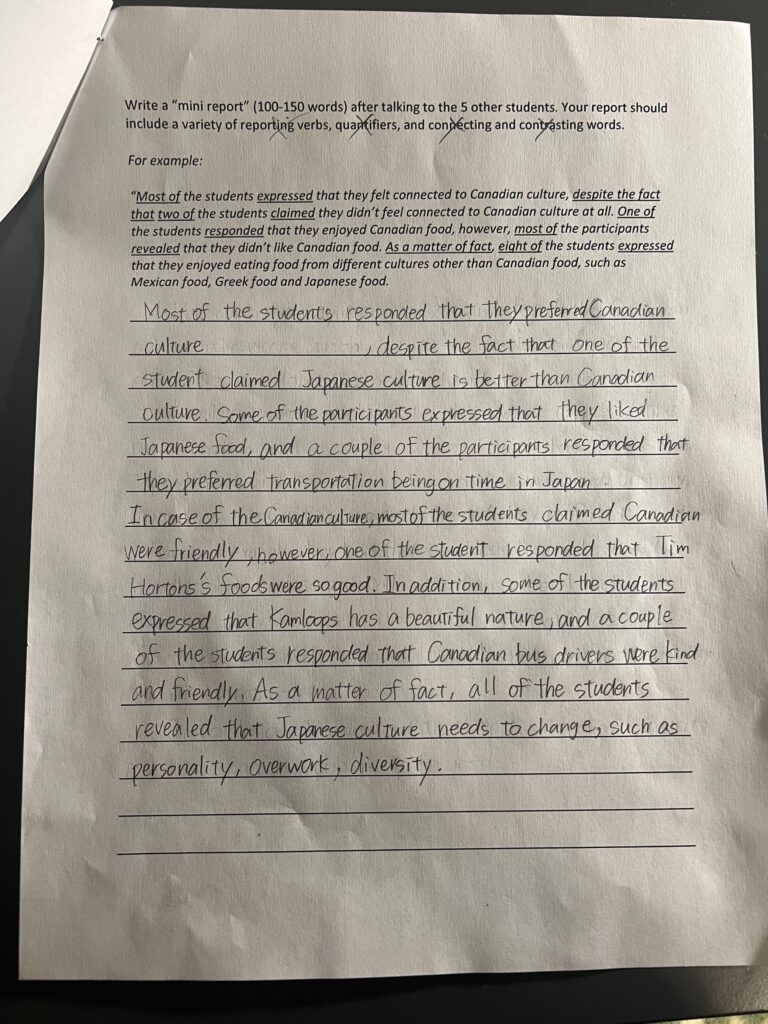 Write a “mini report” (100-150 words) after talking to the 5 other students. Your report should
include a variety of reporting verbs, quantifiers, and connecting and contrasting words.
For example:
“Most of the students expressed that they felt connected to Canadian culture, despite the fact
that two of the students claimed they didn’t feel connected to Canadian culture at all. One of
the students responded that they enjoyed Canadian food, however, most of the participants
revealed that they didn’t like Canadian food. As a matter of fact, eight of the students expressed
that they enjoyed eating food from different cultures other than Canadian food, such as
Mexican food, Greek food and Japanese food.
Most of the students responded that they preferred Canadian
culture , despite the fact that one of the
student claimed Japanese culture is better than Canadian
culture. Some of the participants expressed that they liked
Japanese food, and a couple of the participants responded that
they preferred transportation being on time in Japan.
In case of the Canadian culture, most of the students claimed Canadian
were friendly, however, one of the student responded that Tim
Hortons's foods were so good. In addition, some of the students
expressed that Kamloops has a beautiful nature, and a couple
of the students responded that Canadian bus drivers were kind
and friendly. As a matter of fact, all of the students
revealed that Japanese culture needs to change, such as
personality, overwork, diversity.